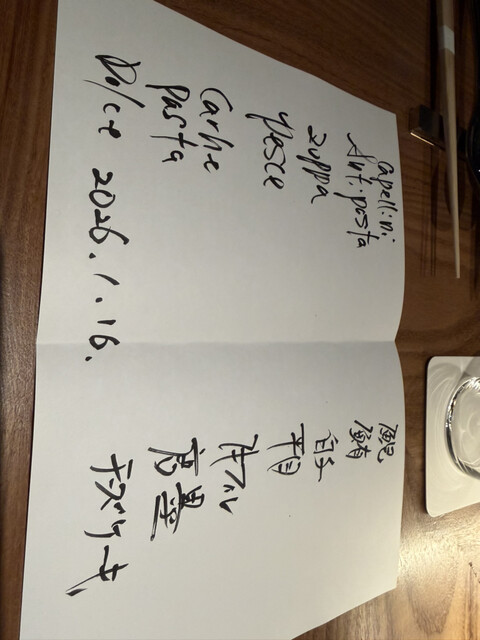 Capellini
Antipasta
zuppa
pesce
Carne
pasta
Dolce 2026.1.16.
鯖
白子
平目
唐墨